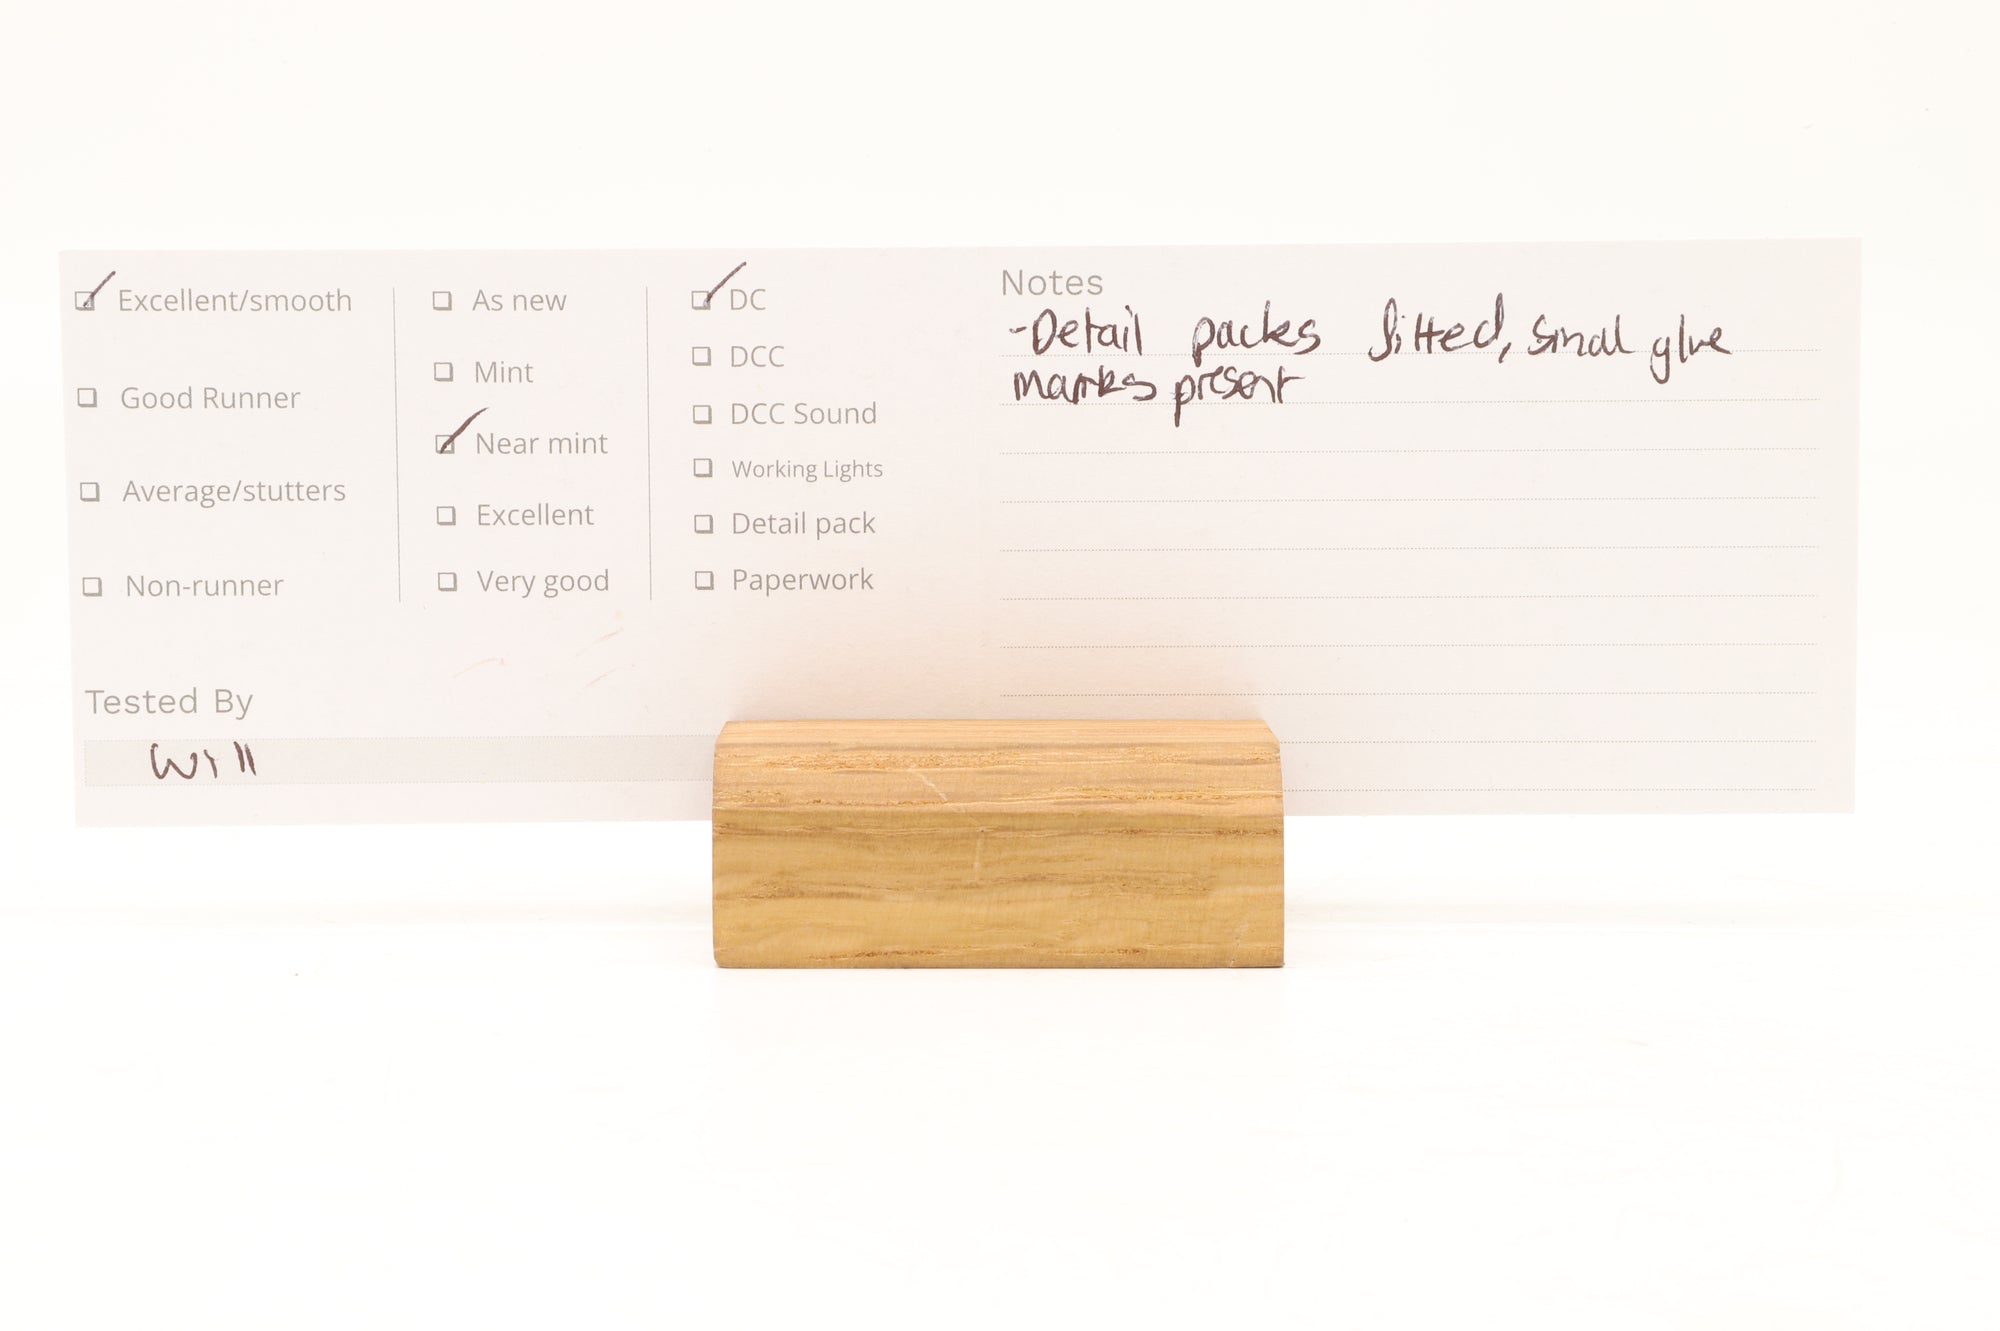 Excellent/smooth
Good Runner
Average/stutters
Non-runner
As new
Mint
Near mint
Excellent
Very good
DC
DCC
DCC Sound
Working Lights
Detail pack
Paperwork
Tested By
Will
Notes
-Detail packs fitted, small glue
marks present